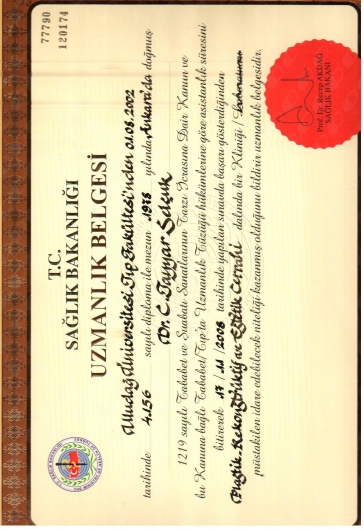 77790
120174
T.C.
SAĞLIK BAKANLIĞI
UZMANLIK BELGESİ
Uludağ Üniversitesi Tıp Fakültesi'nden 01.08.2002
tarihinde 4156 sayılı diploma ile mezun 1978 yılında Ankara'da doğmuş
Dr. C. Tayyar Selçuk
1219 sayılı Tababet ve Şuabatı Sanatlarının Tarzı İcrasına Dair Kanun ve
bu Kanuna bağlı Tababet/Tıp'ta Uzmanlık Tüzüğü hükümlerine göre asistanlık süresini
bitirerek 17/11/2008 tarihinde yapılan sınavda başarı gösterdiğinden
Plastik, Rekonstrüktif ve Estetik Cerrahi dalında bir Kliniği/Laboratuarını
müstakilen idare edebilecek niteliği kazanmış olduğunu bildirir uzmanlık belgesidir.
Prof. Dr. Recep AKDAĞ
SAĞLIK BAKANI